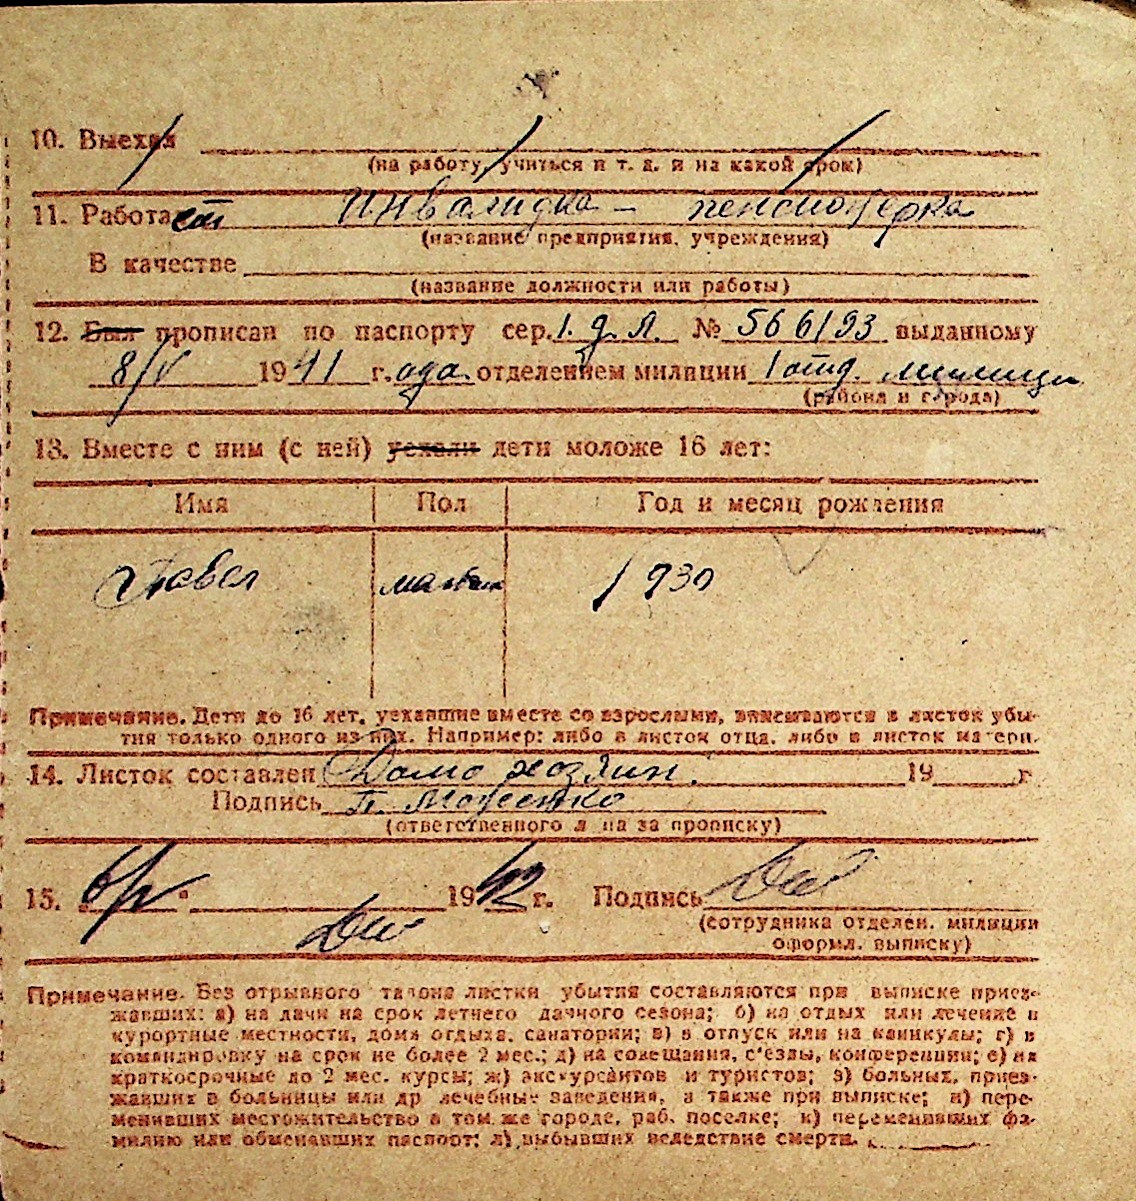 10. Выехал
(на работу, учиться и т. д. и на какой срок)
11. Работает инвалидка – пенсионерка
(название предприятия, учреждения)
В качестве
(название должности или работы)
12. Был прописан по паспорту сер. № 566193 выданному
8/V 1941 г.ода. отделением милиции 1 отд. милиции
(района и города)
13. Вместе с ним (с ней) уехали дети моложе 16 лет:
Имя Пол Год и месяц рождения
Павел 1930
Примечание. Дети до 16 лет, уехавшие вместе со взрослыми, вписываются в листок убы-
тия только одного из них. Например: либо в листок отца, либо в листок матери.
14. Листок составлен Домохозяин. 19 г
Подпись П.
(ответственного лица за прописку)
15. 1942 г. Подпись
(сотрудника отделен. милиции
оформл. выписку)
Примечание. Без отрывного талона листки убытия составляются при выписке приез-
жавших: а) на дачи на срок летнего дачного сезона; б) на отдых или лечение в
курортные местности, дома отдыха, санатории; в) в отпуск или на каникулы; г) в
командировку на срок не более 2 мес.; д) на совещания, с'езды, конференции; е) на
краткосрочные до 2 мес. курсы; ж) экскурсантов и туристов; з) больных, приез-
жавших в больницы или др лечебные заведения, а также при выписке; и) пере-
менивших местожительство в том же городе, раб. поселке; к) переменивших фа-
милию или обменявших паспорт; л) выбывших вследствие смерти.